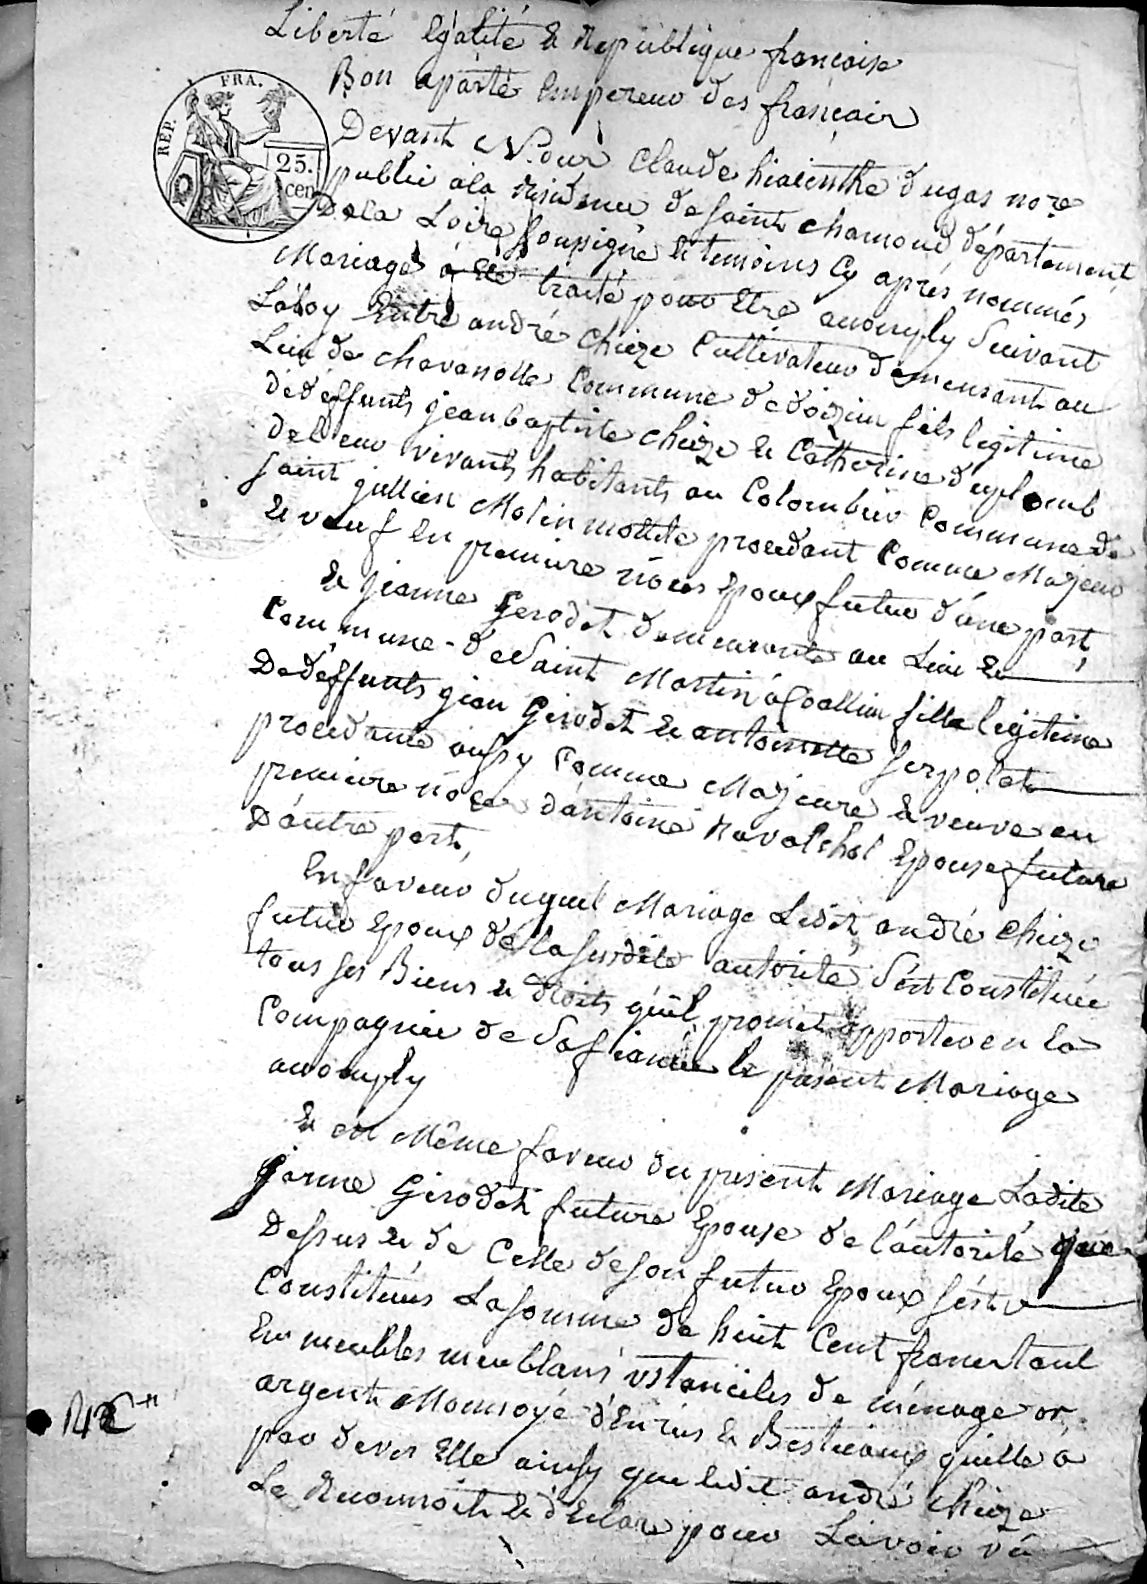 Liberté Egalité & Republique françoise
Bon aparte Empereur des françois
REP. FRA.
25.
cen
Devant Nous Claude hiacinthe dugas no.re
public à la Residence de saint chamond département
De la Loire soussigné & temoins Cy après nommés
Mariage à été traité pour Etre accomply Suivant
La loy Entre andré Chieze Cultivateur demeurant au
Lieu de chavanolle Commune de doizieu fils legitime
dédéffunts jean baptiste chieze & Catherine duplomb
de leur vivants habitants au Colombier Commune de
saint jullien Molin mollette procedant Comme Majeur
& veuf En premiere nôces Epoux futur d'une part,
& jeanne Gerodet demeurante au Lieu &
Commune de Saint Martin à Coallieu fille legitime
De déffunts jean Girodet & antoinette Serpolet
procedante aussy Comme Majeure & veuve en
premiere nôces d'antoine Ravachol Epouse future
D'autre part,
En faveur duquel Mariage Ledit andré chieze
futur Epoux de la susdite autorité S'est Constitué
tous ses Biens & droits qu'il promet apporter en la
Compagnie de Sa fiancée le present Mariage
accomply
& en Même faveur du present Mariage Ladite
jeanne Girodet future Epouse de l'autorité que
Dessus & de Celle de son futur Epoux s'est
Constituée La somme de huit Cent francs tant
En meubles meublans ustanciles de ménage or
argent Monnoyé dEnrées & Bestieaux qu'elle à
par devers Elle ainsy que ledit andré chieze
Le Reconnoit & dEclare pour Lavoir vû